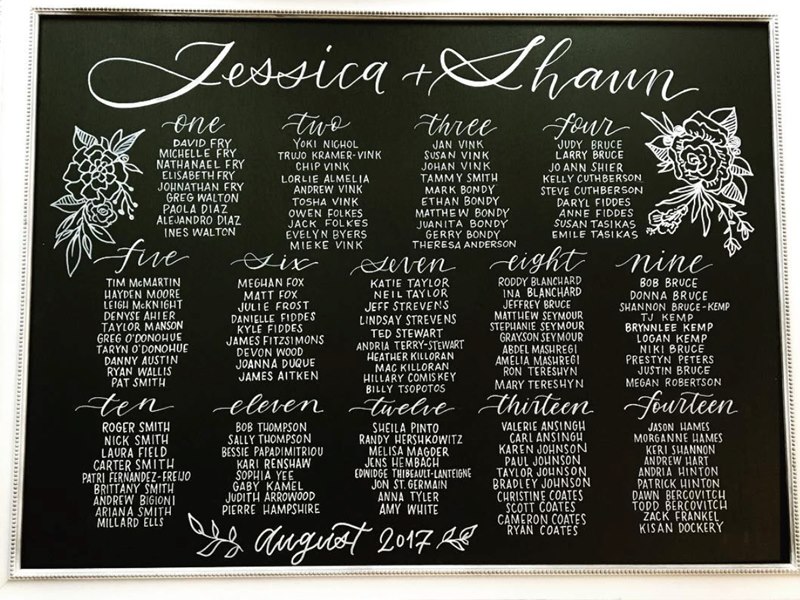 Jessica + Shaun
one
DAVID FRY
MICHELLE FRY
NATHANAEL FRY
ELISABETH FRY
JOHNATHAN FRY
GREG WALTON
PAOLA DIAZ
ALEJANDRO DIAZ
INES WALTON
two
YOKI NICHOL
TRUJO KRAMER-VINK
CHIP VINK
LORLIE ALMELIA
ANDREW VINK
TOSHA VINK
OWEN FOLKES
JACK FOLKES
EVELYN BYERS
MIEKE VINK
three
JAN VINK
SUSAN VINK
JOHAN VINK
TAMMY SMITH
MARK BONDY
ETHAN BONDY
MATTHEW BONDY
JUANITA BONDY
GERRY BONDY
THERESA ANDERSON
four
JUDY BRUCE
LARRY BRUCE
JO ANN SHIER
KELLY CUTHBERSON
STEVE CUTHBERSON
DARYL FIDDES
ANNE FIDDES
SUSAN TASIKAS
EMILE TASIKAS
five
TIM McMARTIN
HAYDEN MOORE
LEIGH McKNIGHT
DENYSE AHIER
TAYLOR MANSON
GREG O'DONOHUE
TARYN O'DONOHUE
DANNY AUSTIN
RYAN WALLIS
PAT SMITH
six
MEGHAN FOX
MATT FOX
JULIE FROST
DANIELLE FIDDES
KYLE FIDDES
JAMES FITZSIMONS
DEVON WOOD
JOANNA DUQUE
JAMES AITKEN
seven
KATIE TAYLOR
NEIL TAYLOR
JEFF STREVENS
LINDSAY STREVENS
TED STEWART
ANDRIA TERRY-STEWART
HEATHER KILLORAN
MAC KILLORAN
HILLARY COMISKEY
BILLY TSOPOTOS
eight
RODDY BLANCHARD
INA BLANCHARD
JEFFREY BRUCE
MATTHEW SEYMOUR
STEPHANIE SEYMOUR
GRAYSON SEYMOUR
ABDEL MASHREGI
AMELIA MASHREGI
RON TERESHYN
MARY TERESHYN
nine
BOB BRUCE
DONNA BRUCE
SHANNON BRUCE-KEMP
TJ KEMP
BRYNNLEE KEMP
LOGAN KEMP
NIKI BRUCE
PRESTYN PETERS
JUSTIN BRUCE
MEGAN ROBERTSON
ten
ROGER SMITH
NICK SMITH
LAURA FIELD
CARTER SMITH
PATRI FERNANDEZ-FREIJO
BRITTANY SMITH
ANDREW BIGIONI
ARIANA SMITH
MILLARD ELLS
eleven
BOB THOMPSON
SALLY THOMPSON
BESSIE PAPADIMITRIOU
KARI RENSHAW
SOPHIA YEE
GABY KAMEL
JUDITH ARROWOOD
PIERRE HAMPSHIRE
twelve
SHEILA PINTO
RANDY HERSHKOWITZ
MELISA MAGDER
JENS HEMBACH
EDWIDGE THIBEAULT-LANTEIGNE
JON ST. GERMAIN
ANNA TYLER
AMY WHITE
thirteen
VALERIE ANSINGH
CARL ANSINGH
KAREN JOHNSON
PAUL JOHNSON
TAYLOR JOHNSON
BRADLEY JOHNSON
CHRISTINE COATES
SCOTT COATES
CAMERON COATES
RYAN COATES
fourteen
JASON HAMES
MORGANNE HAMES
KERI SHANNON
ANDREW HART
ANDRIA HINTON
PATRICK HINTON
DAWN BERCOVITCH
TODD BERCOVITCH
ZACK FRANKEL
KISAN DOCKERY
august 2017